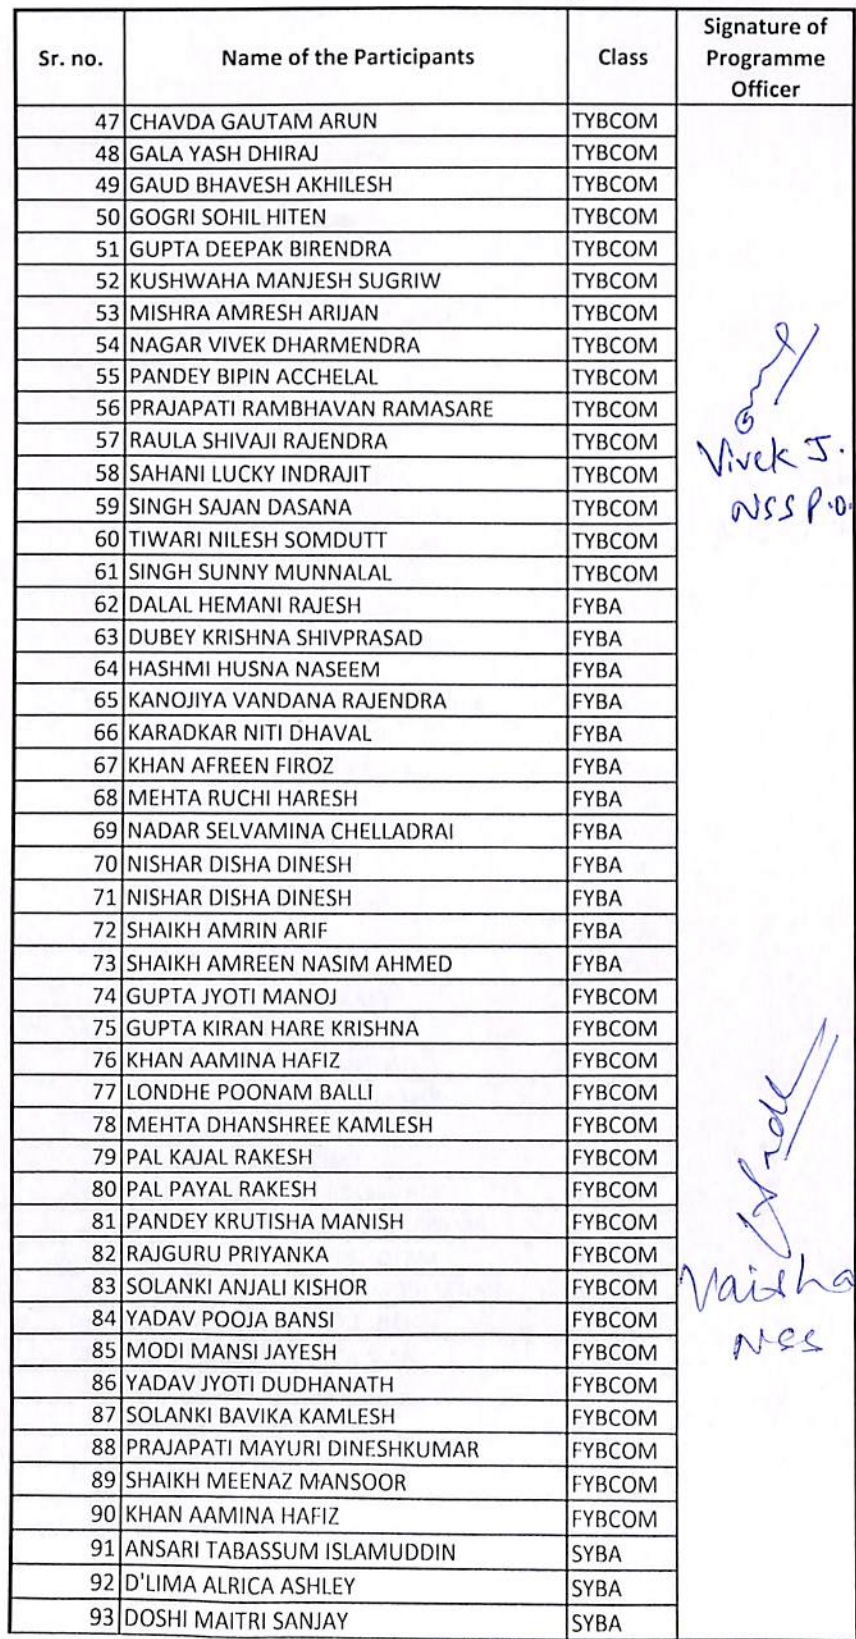 Sr. no. Name of the Participants Class Signature of Programme Officer
47 CHAVDA GAUTAM ARUN TYBCOM
48 GALA YASH DHIRAJ TYBCOM
49 GAUD BHAVESH AKHILESH TYBCOM
50 GOGRI SOHIL HITEN TYBCOM
51 GUPTA DEEPAK BIRENDRA TYBCOM
52 KUSHWAHA MANJESH SUGRIW TYBCOM
53 MISHRA AMRESH ARIJAN TYBCOM
54 NAGAR VIVEK DHARMENDRA TYBCOM
55 PANDEY BIPIN ACCHELAL TYBCOM
56 PRAJAPATI RAMBHAVAN RAMASARE TYBCOM
57 RAULA SHIVAJI RAJENDRA TYBCOM
Vivek J.
58 SAHANI LUCKY INDRAJIT TYBCOM
59 SINGH SAJAN DASANA TYBCOM
NSS P.O.
60 TIWARI NILESH SOMDUTT TYBCOM
61 SINGH SUNNY MUNNALAL TYBCOM
62 DALAL HEMANI RAJESH FYBA
63 DUBEY KRISHNA SHIVPRASAD FYBA
64 HASHMI HUSNA NASEEM FYBA
65 KANOJIYA VANDANA RAJENDRA FYBA
66 KARADKAR NITI DHAVAL FYBA
67 KHAN AFREEN FIROZ FYBA
68 MEHTA RUCHI HARESH FYBA
69 NADAR SELVAMINA CHELLADRAI FYBA
70 NISHAR DISHA DINESH FYBA
71 NISHAR DISHA DINESH FYBA
72 SHAIKH AMRIN ARIF FYBA
73 SHAIKH AMREEN NASIM AHMED FYBA
74 GUPTA JYOTI MANOJ FYBCOM
75 GUPTA KIRAN HARE KRISHNA FYBCOM
76 KHAN AAMINA HAFIZ FYBCOM
77 LONDHE POONAM BALLI FYBCOM
78 MEHTA DHANSHREE KAMLESH FYBCOM
79 PAL KAJAL RAKESH FYBCOM
80 PAL PAYAL RAKESH FYBCOM
81 PANDEY KRUTISHA MANISH FYBCOM
82 RAJGURU PRIYANKA FYBCOM
83 SOLANKI ANJALI KISHOR FYBCOM
Vaisha
84 YADAV POOJA BANSI FYBCOM
85 MODI MANSI JAYESH FYBCOM
NSS
86 YADAV JYOTI DUDHANATH FYBCOM
87 SOLANKI BAVIKA KAMLESH FYBCOM
88 PRAJAPATI MAYURI DINESHKUMAR FYBCOM
89 SHAIKH MEENAZ MANSOOR FYBCOM
90 KHAN AAMINA HAFIZ FYBCOM
91 ANSARI TABASSUM ISLAMUDDIN SYBA
92 D'LIMA ALRICA ASHLEY SYBA
93 DOSHI MAITRI SANJAY SYBA